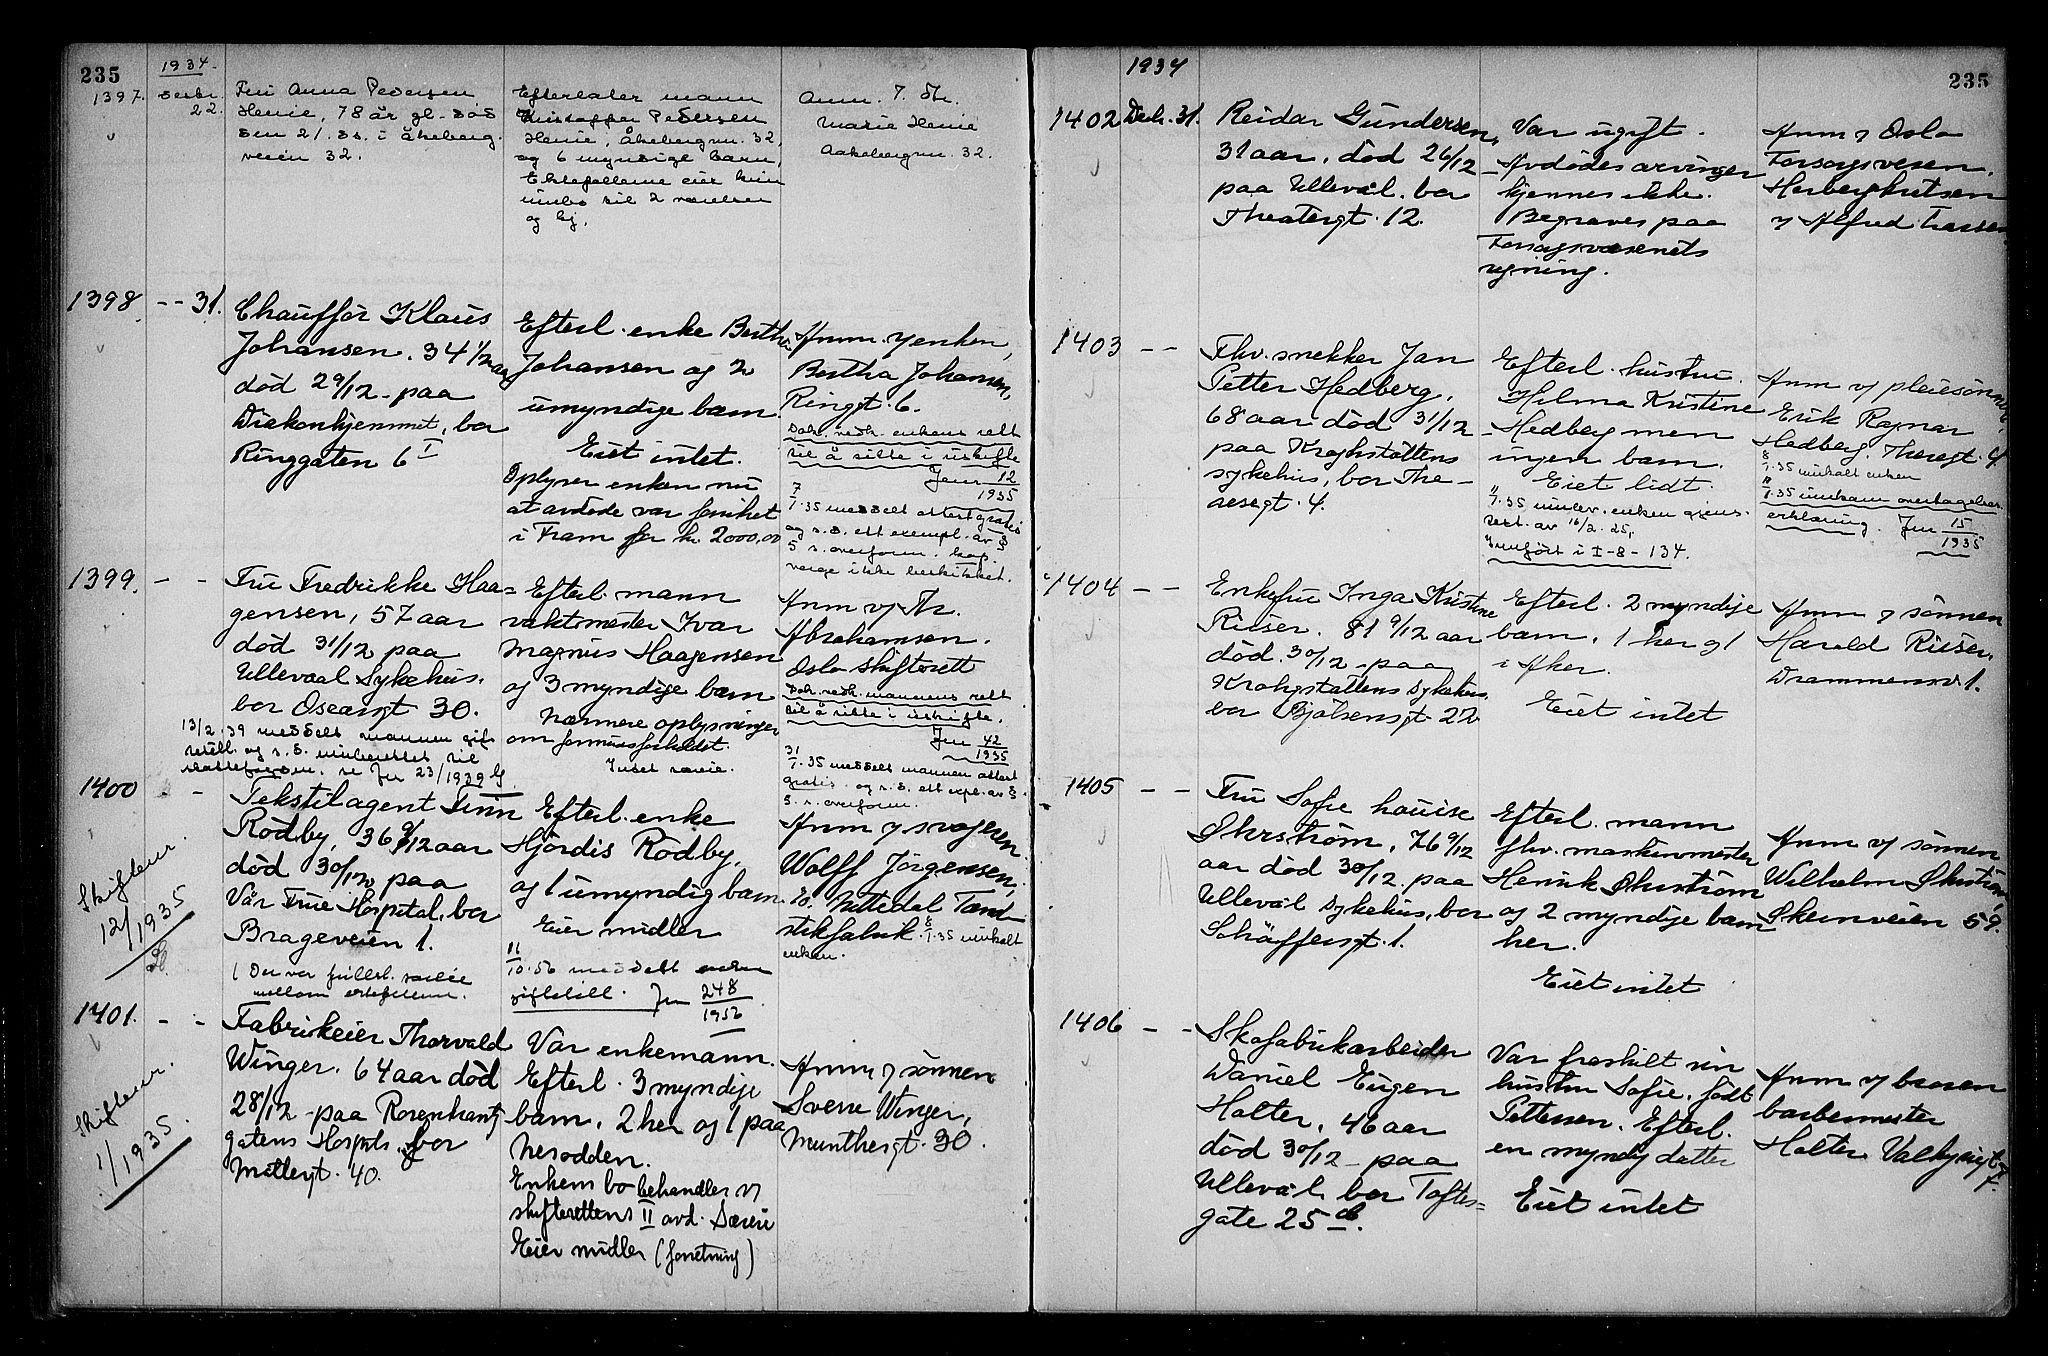 235
1934.
1397. Decbr. 22.
Fru Anna Pedersen
Henie, 78 år gl. död
den 21. ds. i Åkeberg-
veien 32.
Efterlater mann
Kristoffer Pedersen
Henie, Åkebergvn. 32,
og 6 myndige barn,
Ektefellerne eier kun
innbo til 2 værelser
og kj.
Anm. 7. Str.
Marie Henie
Aakebergvn. 32.
1398 - - 31.
Chaufför Klaus
Johansen. 34 1/2 aar
död 29/12 - paa
Diakonhjemmet, bor
Ringgaten 6 I
Efterl. enke Bertha
Johansen og 2
umyndige barn.
Eiet intet.
Oplyser enken nu
at avdøde var forsikret
i Fram for kr. 2000,00
Anm. v/ enken,
Bertha Johansen,
Ringgt. 6.
Dok. vedk. enkens rett
til å sitte i uskifte
Jnr 12/1935
7/1.35 meddelt attest gratis
og s. d. ett exempl. av §
5 s. overform. kap.
verge ikke beskikket.
1399. - -
Fru Fredrikke Haa=
gensen, 57 aar
död 31/12 paa
Ullevaal Sykehus.
bor Oscarsgt 30.
13/2.39 meddelt mannen gif-
tetill. og s. d. innberettet til
skattefogden. se Jnr 23/1939
Efterl. mann
vaktmester Ivar
Magnus Haagensen
og 3 myndige barn
Nærmere oplysninger
om formuesforholdet.
Intet særeie.
Anm v/ Hr.
Abrahamsen.
Oslo skifterett
Dok. vedk. mannens rett
til å sitte i uskifte.
Jnr 42/1935
31/1.35 meddelt mannen attest
gratis og s. d. ett expl. av §
5. s. overform.
1400 - -
Skifteur.
12/1935
Tekstilagent Finn
Rödby, 36 9/12 aar
död 30/12 paa
Vår Frue Hospital, bor
Brageveien 1.
( Der var fullst. særeie
mellom ektefellene.
Efterl. enke
Hjördis Rödby,
og 1 umyndig barn.
Eier midler
11/10.56 meddelt enken
giftetill. Jnr 248/1956
Anm v/ svogeren
Wolff Jörgensen,
Nittedal Tænd
stikfabrik. 8/1.35 innkalt
enken.
1401. - -
Skifteur.
1/1935.
Fabrikeier Thorvald
Winger. 64 aar död
28/12 - paa Rosenkrantz
gatens Hospits. bor
Møllergt. 40.
Var enkemann.
Efterl. 3 myndige
barn, 2 her og 1 paa
Nesodden.
Enkens bo behandles v/
skifterettens II avd. Særeie
Eier midler (forretning)
Anm v/ sönnen
Sverre Winger,
Munthesgt. 30.
1934
235
1402 Dcbr. 31.
Reidar Gundersen,
31 aar, död 26/12 -
paa Ullevål. bor
Theatergt. 12.
Var ugift.
Avdödes arvinger
kjennes ikke.
Begraves paa
Forsorgsvæsenets
regning.
Anm v/ Oslo
Forsorgsvesen.
Herbergkretsen
v/ Alfred Larsen
1403 - -
Fhv. snekker Jan
Petter Hedberg,
68 aar död 31/12 -
paa Kroghstøttens
sykehus, bor The-
resesgt. 4.
Efterl. hustru
Hilma Kristine
Hedberg men
ingen barn.
Eiet lidt.
11/1.35 innlev. enken gjens.
test. av 16/2.25,
Innfört i I-8-134.
Anm v/ pleiesönnen,
Erik Ragnar
Hedberg. Theresgt. 4.
8/1.35 innkalt enken
11/1.35 innkom overtagelses
erklæring. Jnr 15/1935
1404 - -
Enkefru Inga Kristine
Riiser. 81 9/12 aar
död. 30/12 - paa
Krohgstøttens Sykehus
bor Bjölsensgt. 22
Efterl. 2 myndige
barn, 1 her og 1
i Aker.
Eiet intet
Anm v/ sönnen
Harald Riiser,
Drammensv. 1.
1405 - -
Fru Sofie Louise
Øhrström, 76 9/12
aar död 30/12 - paa
Ullevål Sykehus, bor
Schäffersgt. 1.
Efterl. mann
fhv. maskinmester
Henrik Øhrström
og 2 myndige barn
her.
Eiet intet
Anm v/ sönnen
Wilhelm Øhrström,
Skeinveien 59.
1406 - -
Skofabrikarbeider
Daniel Eugen
Holter, 46 aar
död 30/12 - paa
Ullevål bor Toftes=
gate 25 d.
Var fraskilt sin
hustru Sofie, födt
Pettersen. Efterl.
en myndig datter
Eiet intet
Anm v/ broren
barbermester
Holter Valkyriegt
7.